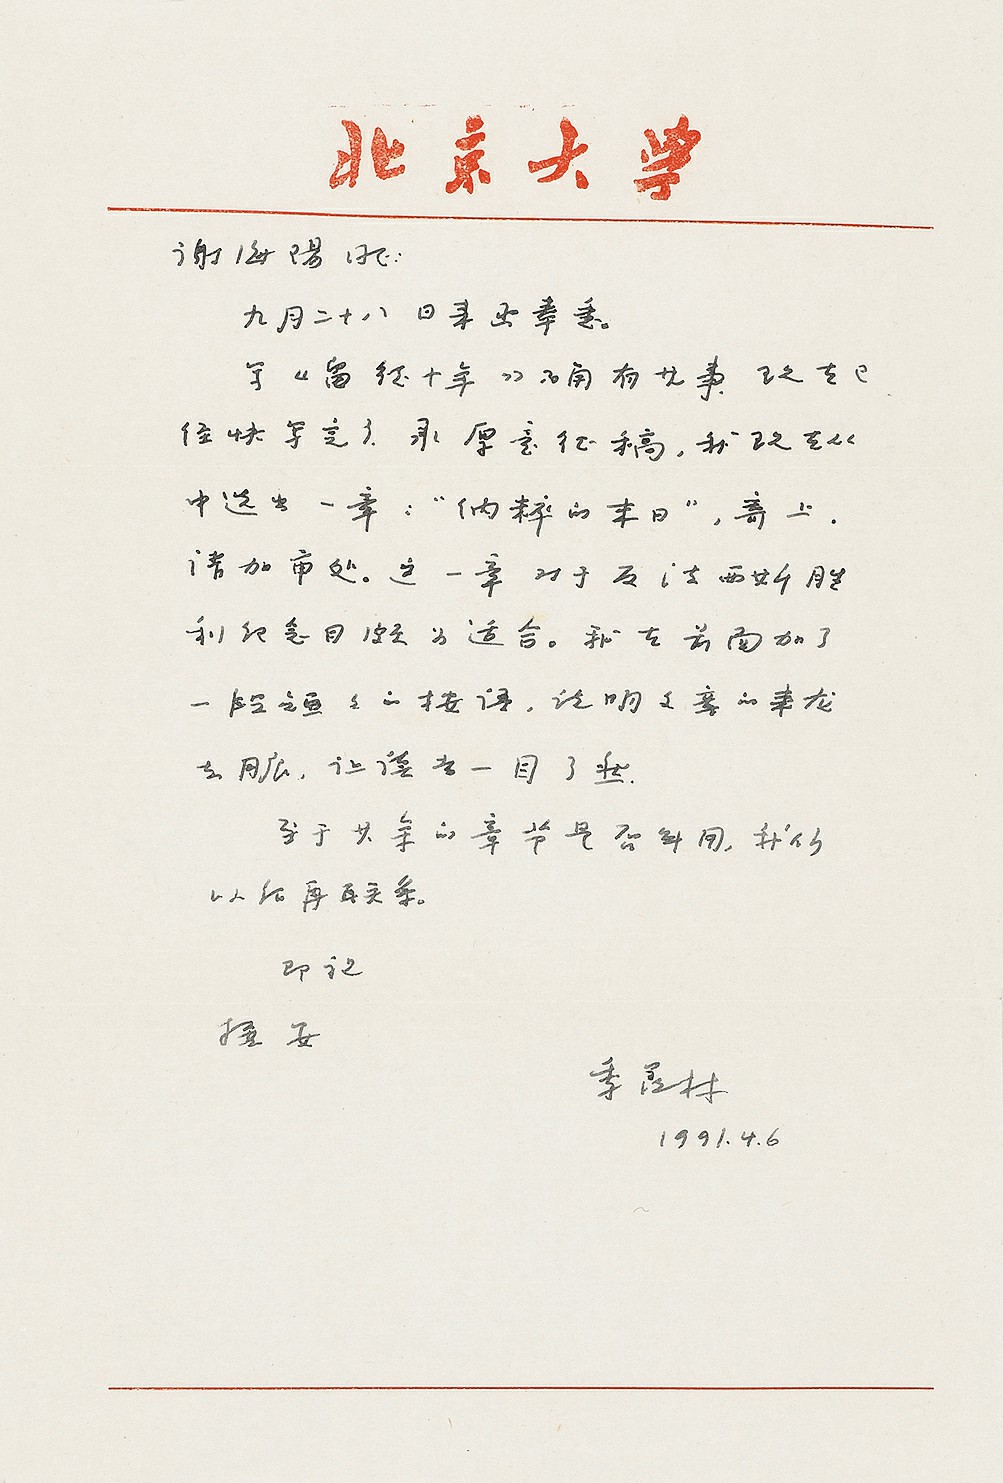 北京大学
谢海阳同志:
九月二十八日来函奉悉。
写《留德十年》确有其事 现在已
经快写完了. 承厚意征稿, 我现在从
中选出一章: “纳粹的末日”, 寄上.
请加审处。这一章对于反法西斯胜
利纪念日颇为适合。我在前面加了
一段短短的按语, 说明文章的来龙
去脉, 让读者一目了然.
至于其余的章节是否采用, 我们
以后再联系。
即祝
撰安
季羡林
1991.4.6